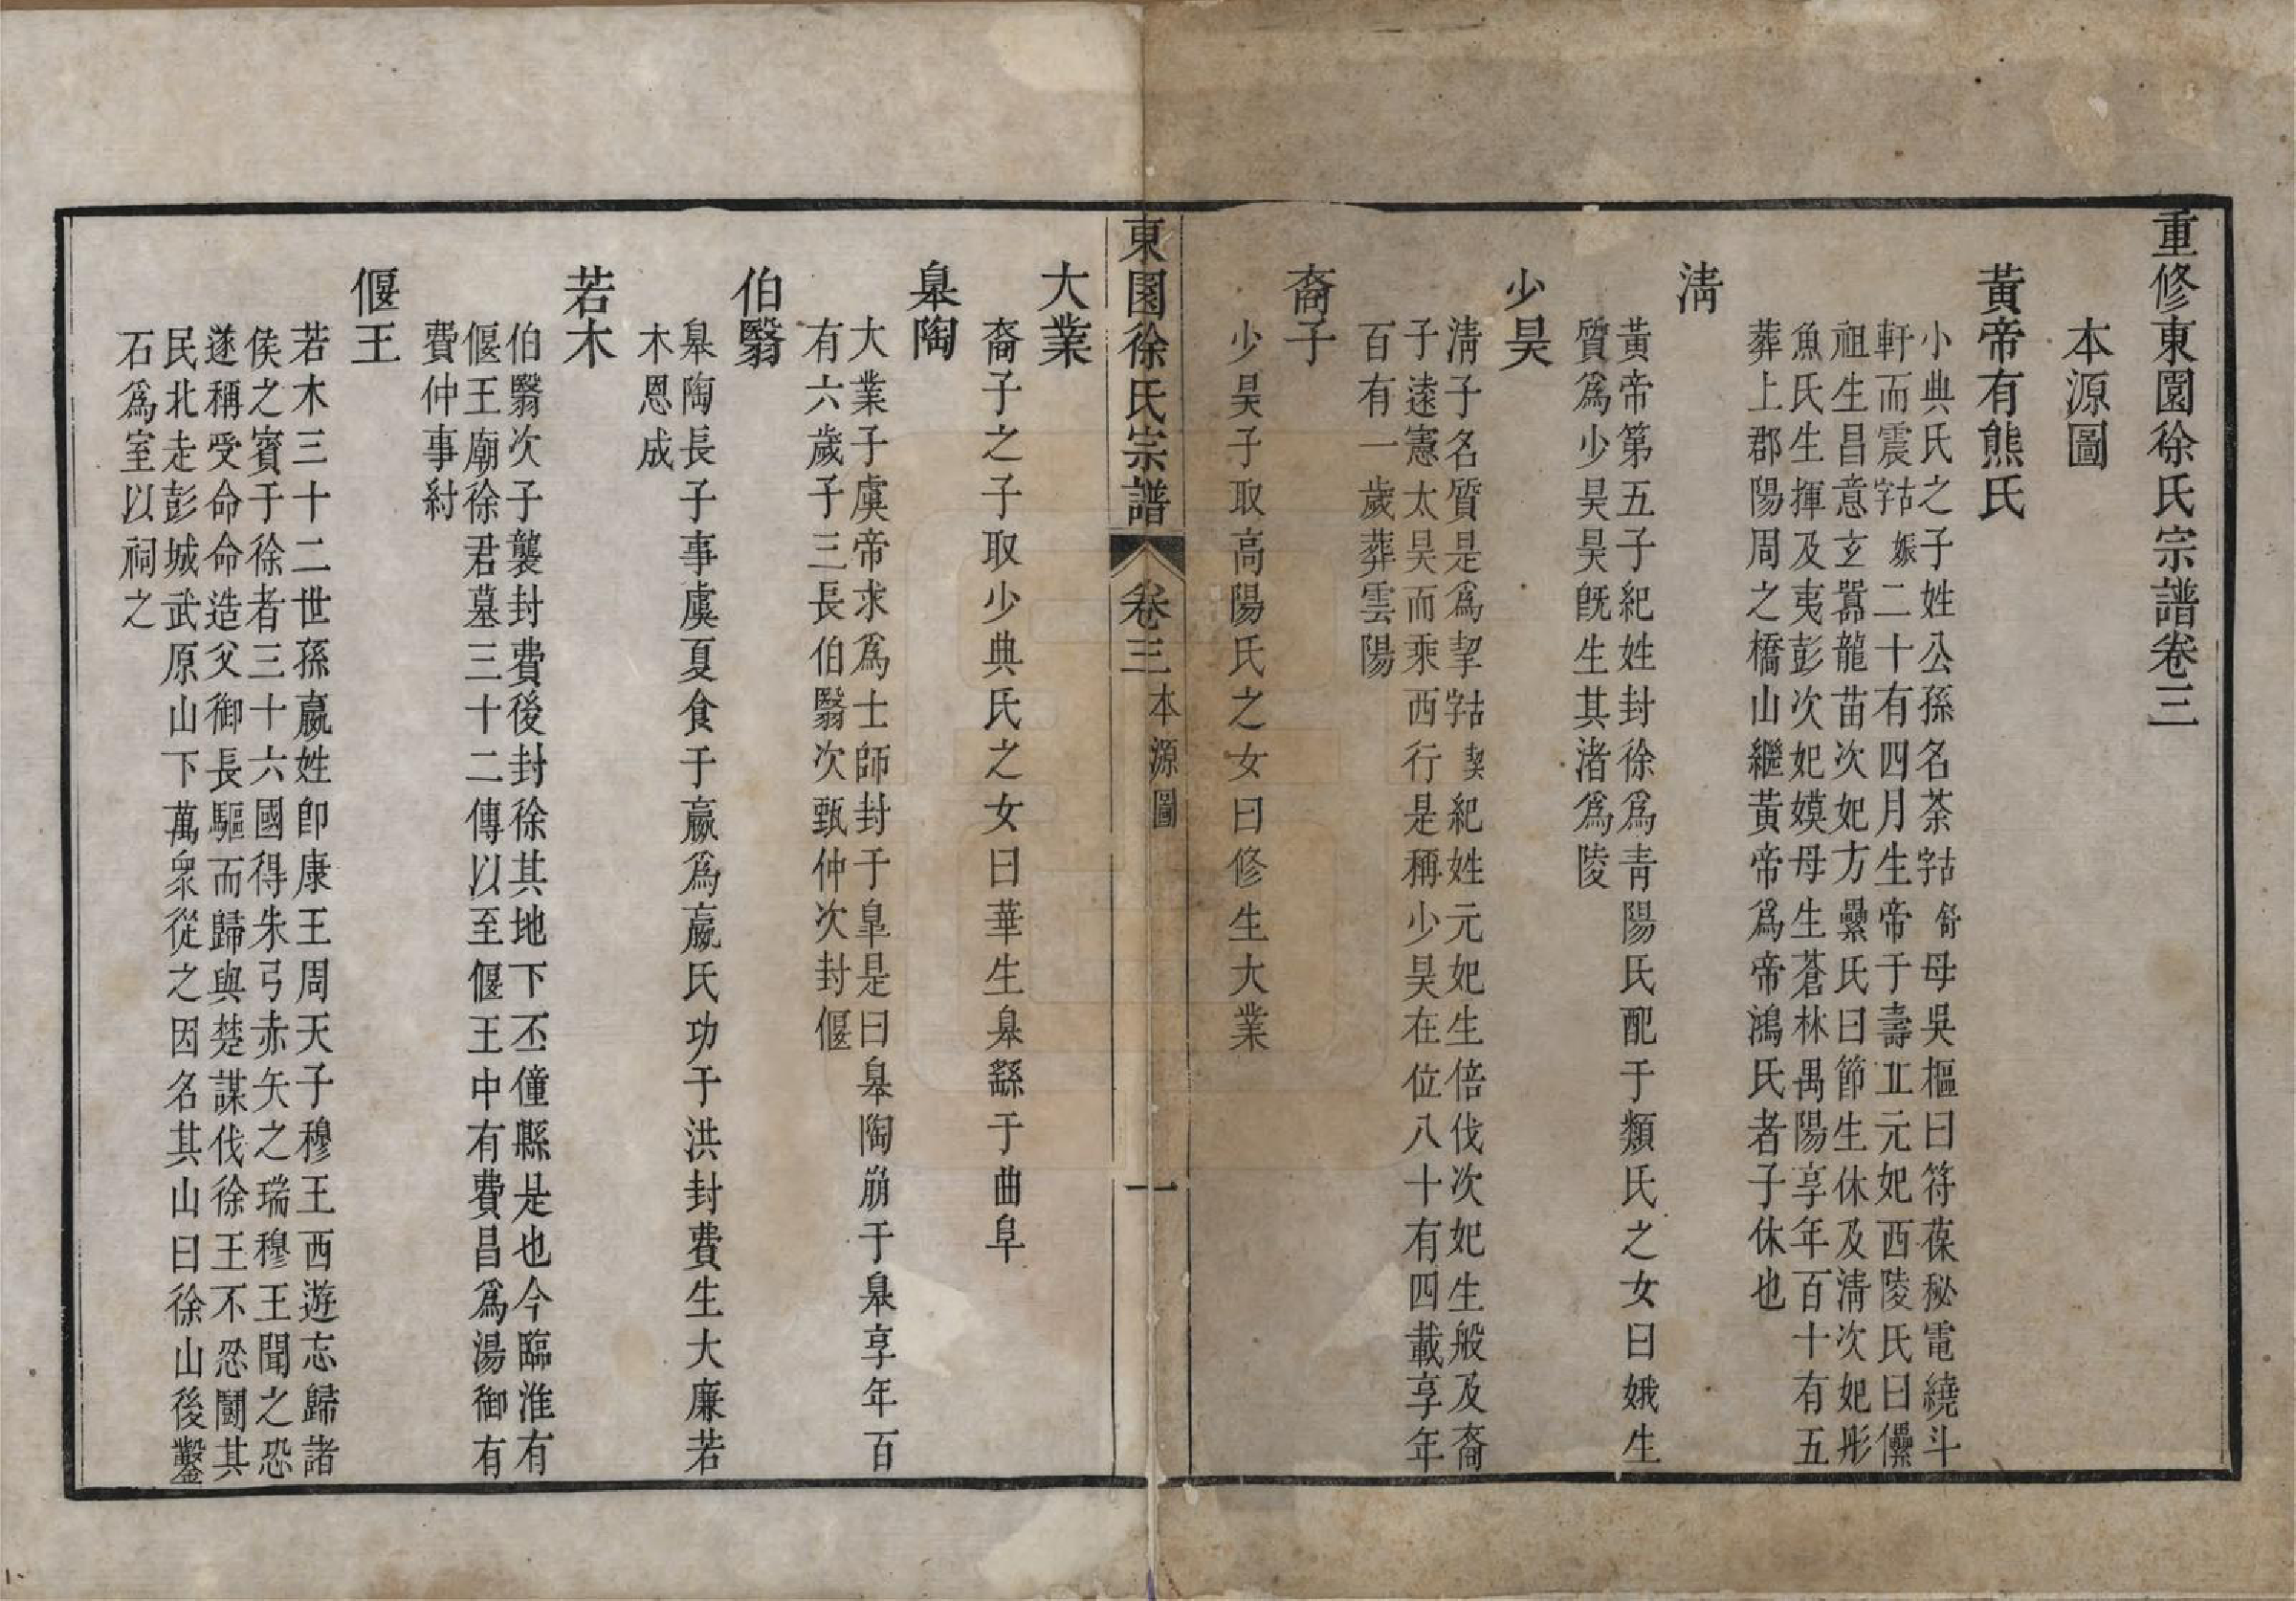 重修東園徐氏宗譜卷三
本源圖
黃帝有熊氏
小典氏之子姓公孫名荼古舒字母吳樞曰符葆秘電繞斗
軒而震古娠字二十有四月生帝于壽丘元妃西陵氏曰儽
祖生昌意玄囂龍苗次妃方纍氏曰節生休及淸次妃彤
魚氏生揮及夷彭次妃嫫母生蒼林禺陽享年百十有五
葬上郡陽周之橋山繼黃帝爲帝鴻氏者子休也
淸
黃帝第五子紀姓封徐爲靑陽氏配于類氏之女曰娥生
質爲少昊昊旣生其渚爲陵
少昊
淸子名質是爲挈古契字紀姓元妃生倍伐次妃生般及裔
子逺憲太昊而乘西行是稱少昊在位八十有四載享年
百有一歲葬雲陽
裔子
少昊子取高陽氏之女曰修生大業
東園徐氏宗譜 卷三 本源圖 一
大業
裔子之子取少典氏之女曰華生臯繇于曲阜
臯陶
大業子虞帝求爲士師封于皐是曰臯陶崩于臯享年百
有六歲子三長伯翳次甄仲次封偃
伯翳
臯陶長子事虞夏食于嬴爲嬴氏功于洪封費生大廉若
木恩成
若木
伯翳次子襲封費後封徐其地下丕僮縣是也今臨淮有
偃王廟徐君墓三十二傳以至偃王中有費昌爲湯御有
費仲事紂
偃王
若木三十二世孫嬴姓卽康王周天子穆王西遊忘歸諸
侯之賓于徐者三十六國得朱弓赤矢之瑞穆王聞之恐
遂稱受命命造父御長驅而歸與楚謀伐徐王不忍鬪其
民北走彭城武原山下萬衆從之因名其山曰徐山後鑿
石爲室以祠之